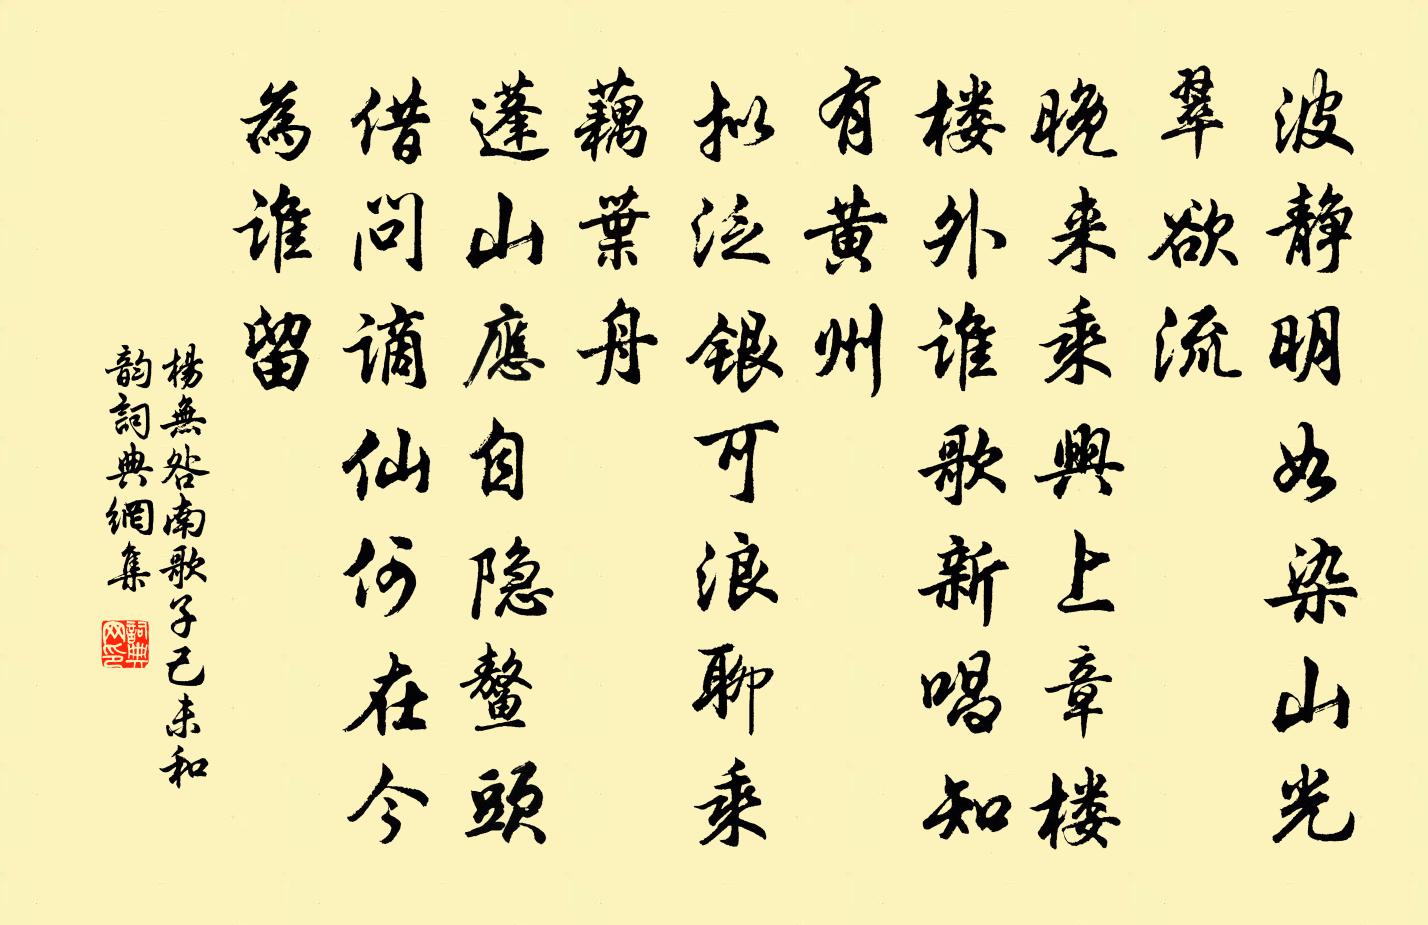 波静明如染山光
翠欲流
晚来乘興上章楼
楼外谁歌新唱知
有黄州
拟泛银可浪聊乘
藕葉舟
蓬山應自隐鳌頭
借问谪仙何在今
為谁留
楊無咎南歌子己未和
韵詞典網集
詞典
网印